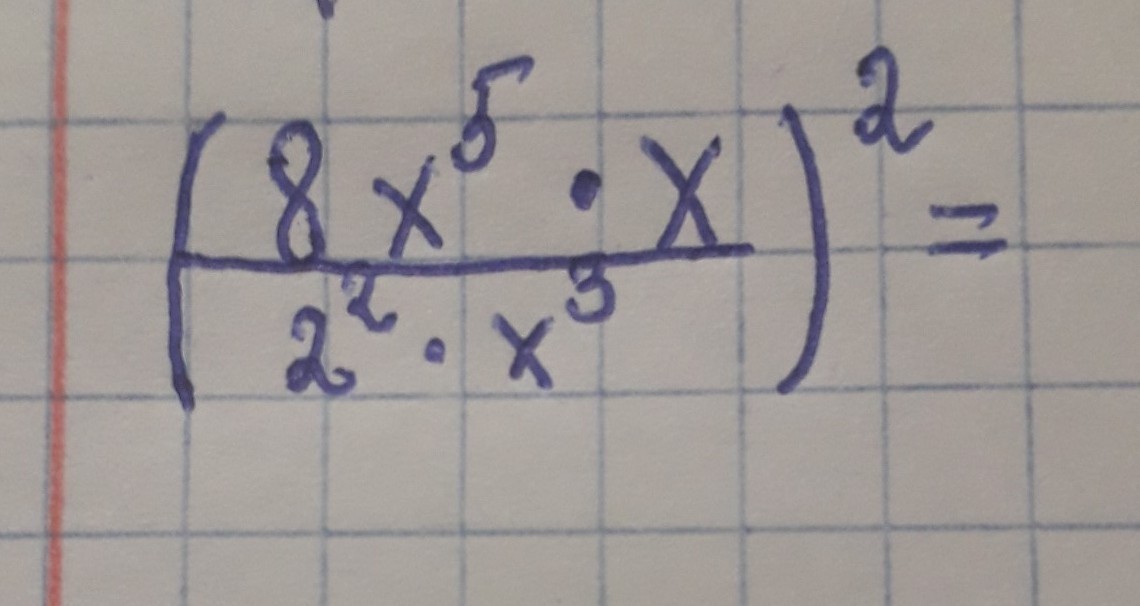 (8x⁵ · x / 2² · x³)² =